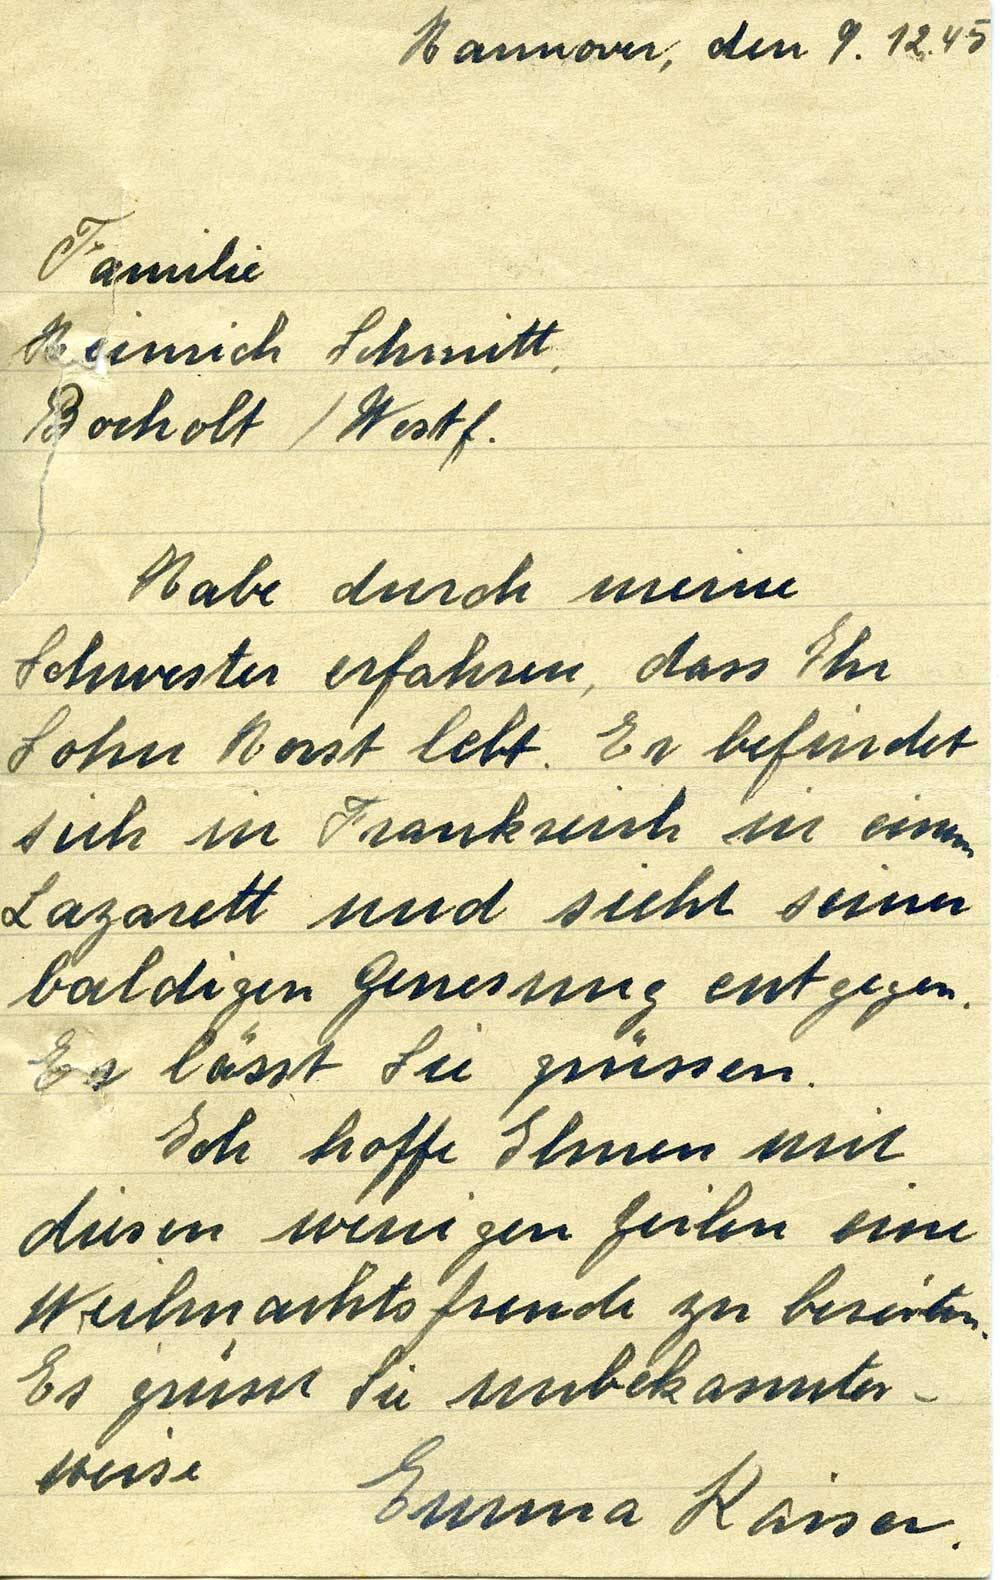 Hannover, den 9. 12. 45
Familie
Heinrich Schmitt,
Bocholt / Westf.
Habe durch meine
Schwester erfahren, dass Ihr
Sohn Horst lebt. Er befindet
sich in Frankreich in einem
Lazarett und sieht seiner
baldigen Genesung entgegen.
Er lässt Sie grüssen.
Ich hoffe Ihnen mit
diesen wenigen Zeilen eine
Weihnachtsfreude zu bereiten.
Es grüsst Sie unbekannter-
weise
Emma Kaiser.